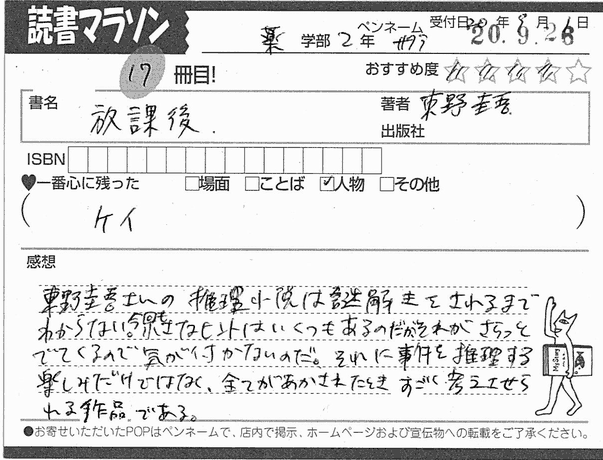 読書マラソン
薬 学部 2年 ペンネーム 受付日 年 月 日
20.9.26
17 冊目! おすすめ度
書名 放課後. 著者 東野圭吾
出版社
ISBN
♥一番心に残った □場面 □ことば ☑人物 □その他
( ケイ )
感想
東野圭吾さんの推理小説は謎解きをされるまで
わからない。 きなヒントはいくつもあるのだがそれがさらっと
でてくるので気が付かないのだ。それに事件を推理する
楽しみだけではなく、全てがあかされたときすごく考えさせら
れる作品である。
●お寄せいただいたPOPはペンネームで、店内で掲示、ホームページおよび宣伝物への転載をご了承ください。